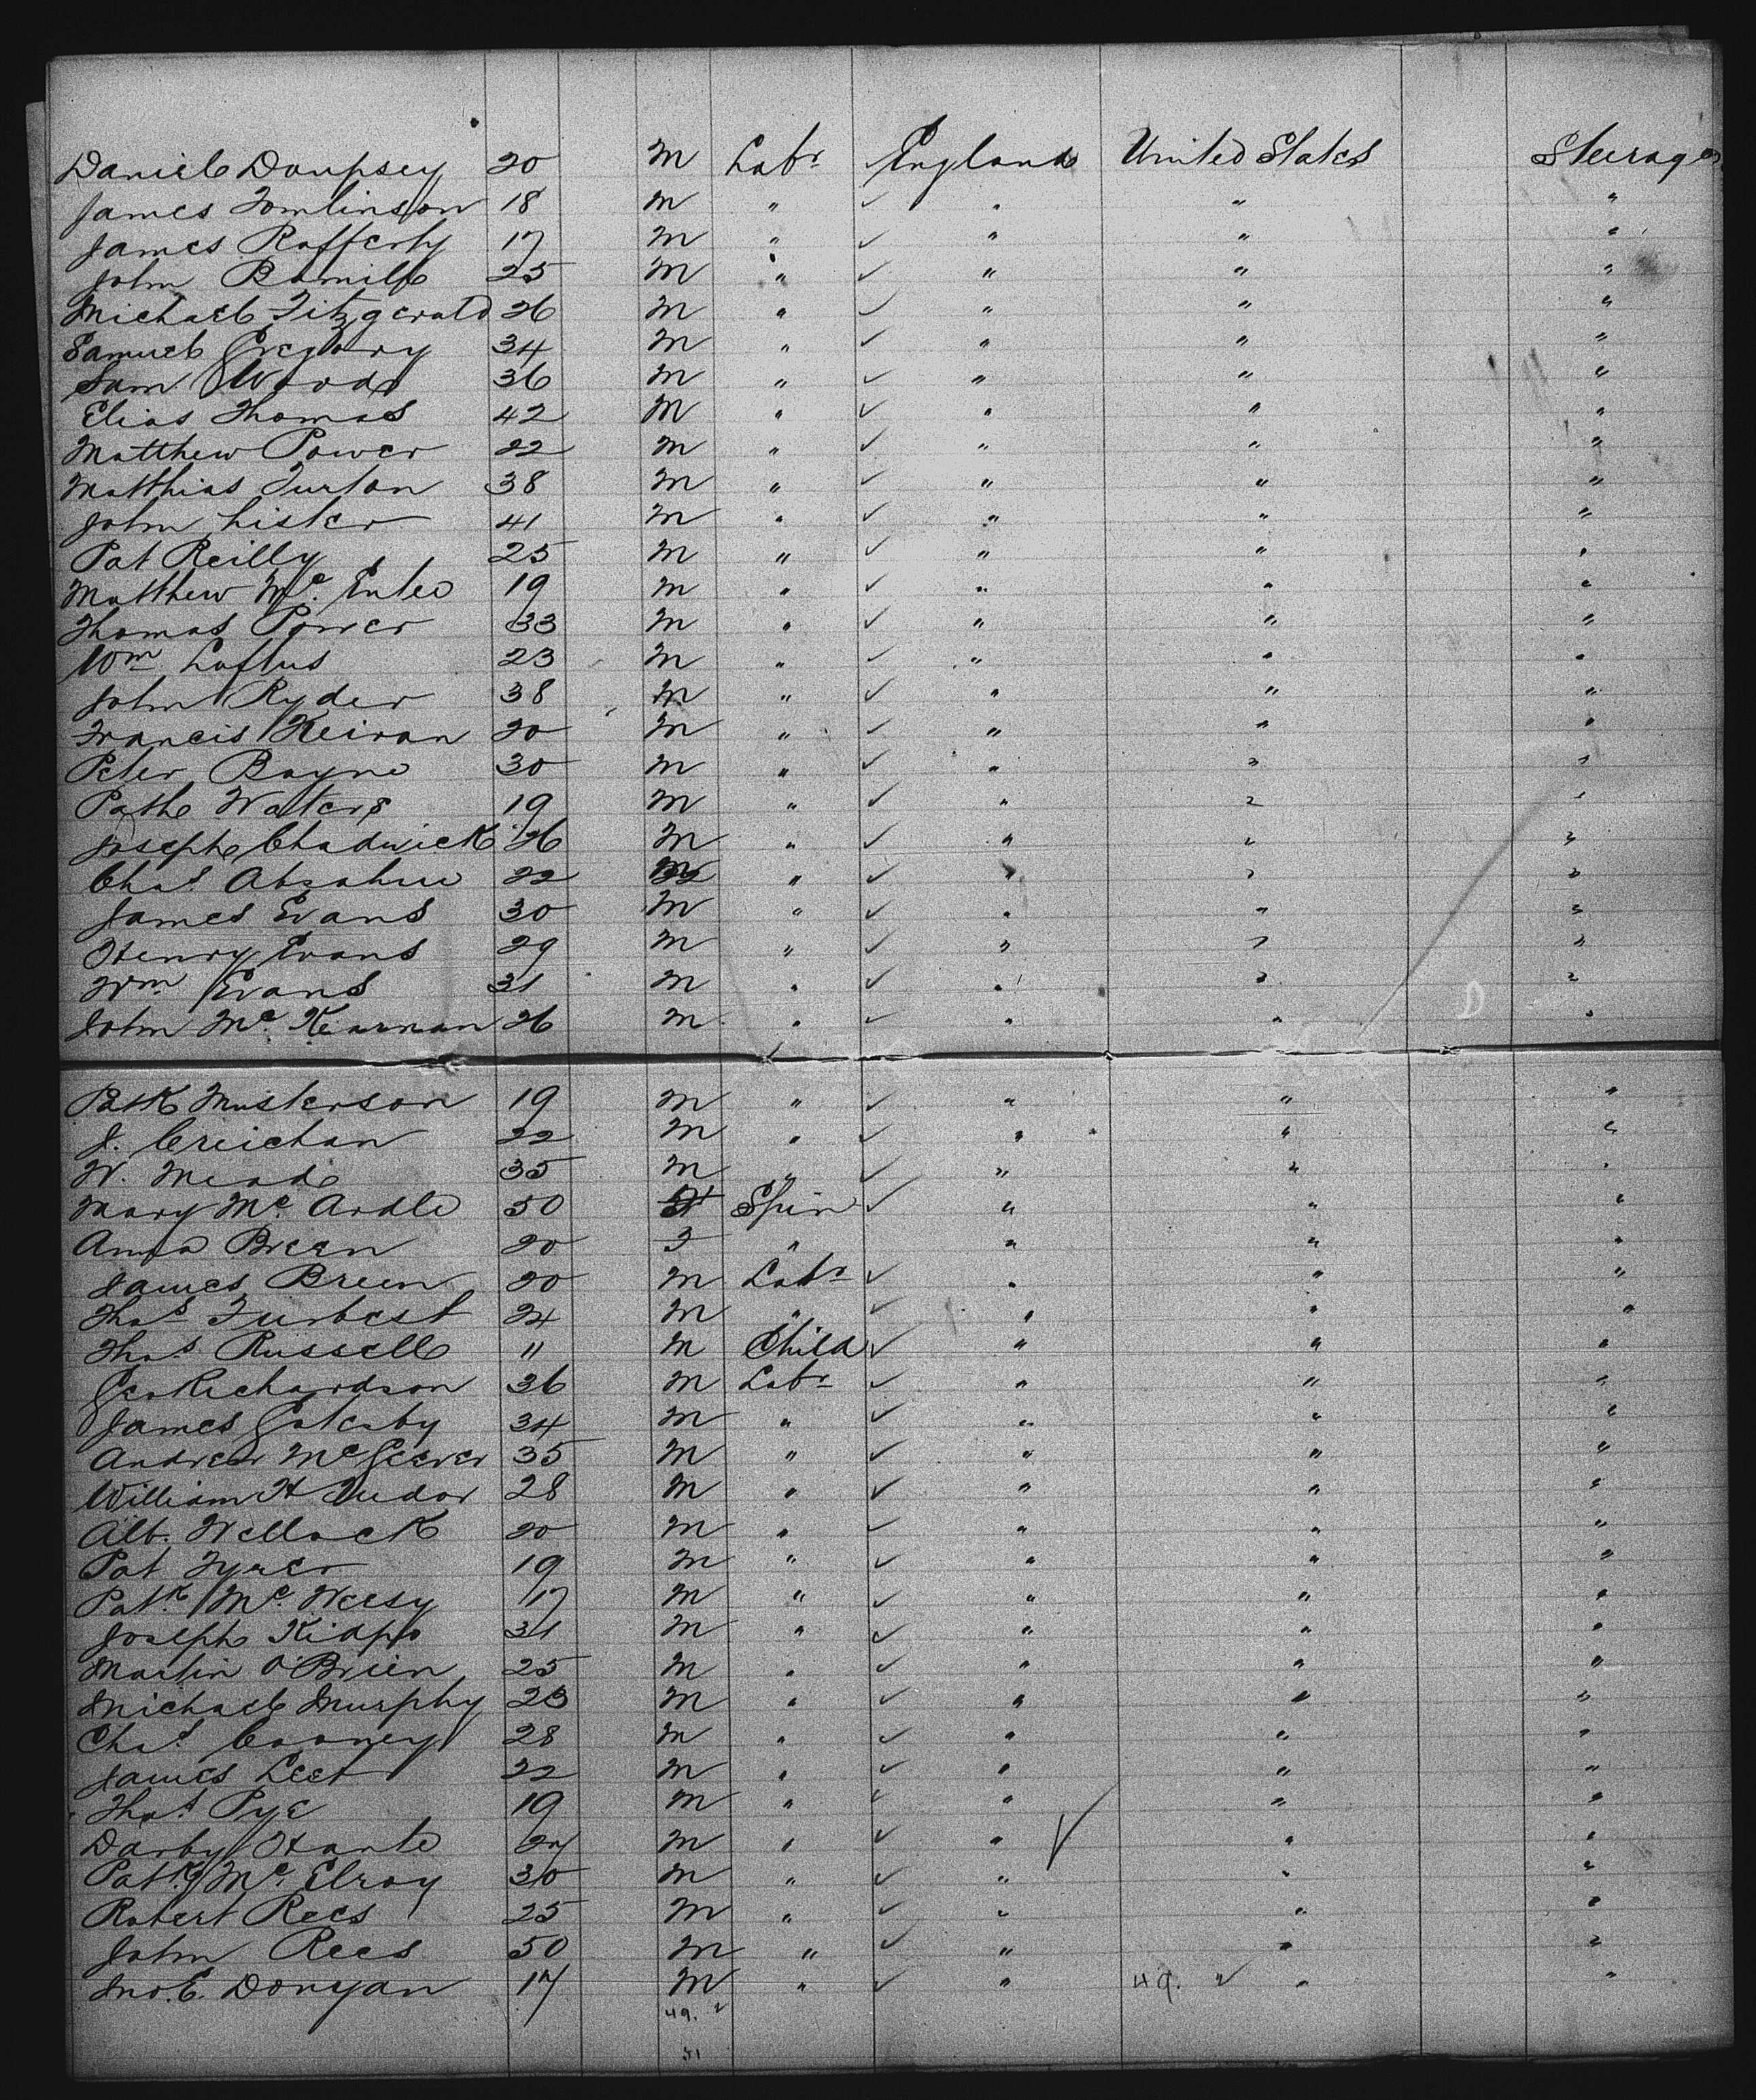 Daniel Dempsey 20 M Labr ✓ England United States Steerage
James Tomlinson 18 M " ✓ " " "
James Rafferty 17 M " ✓ " " "
John 25 M " ✓ " " "
Michael Fitzgerald 26 M " ✓ " " "
Samuel Gregory 34 M " ✓ " " "
Sam Woods 36 M " ✓ " " "
Elias Thomas 42 M " ✓ " " "
Matthew Power 22 M " ✓ " " "
Matthias Turton 38 M " ✓ " " "
John Lister 41 M " ✓ " " "
Pat Reilly 25 M " ✓ " " "
Matthew Mc. Entee 19 M " ✓ " " "
Thomas Power 33 M " ✓ " " "
Wm Loftus 23 M " ✓ " " "
John Ryder 38 M " ✓ " " "
Francis Keiran 20 M " ✓ " " "
Peter Bayne 30 M " ✓ " " "
Waters 19 M " ✓ " " "
Joseph Chadwick 26 M " ✓ " " "
Chas. 22 M " ✓ " " "
James Evans 30 M " ✓ " " "
Henry Evans 29 M " ✓ " " "
Wm Evans 31 M " ✓ " " "
John Mc. Kearnan 26 M " ✓ " " "
Patk Musterson 19 M " ✓ " " "
J. Creichan 22 M " ✓ " " "
W. Meade 35 M " ✓ " " "
Mary Mc. Ardle 50 F Spin ✓ " " "
Anna Breen 20 F " " " "
James Breen 20 M Labr ✓ " " "
Thos 24 M " ✓ " " "
Thos. Russell 11 M Child ✓ " " "
Geo Richardson 36 M Labr ✓ " " "
James Gatesby 34 M " ✓ " " "
Andrew McGeever 35 M " ✓ " " "
William H Tudor 28 M " ✓ " " "
Alb. Wellock 20 M " ✓ " " "
Pat Tyrer 19 M " ✓ " " "
Patk. Mc. 17 M " ✓ " " "
Joseph 31 M " ✓ " " "
Martin O'Brien 25 M " ✓ " " "
Michael Murphy 23 M " ✓ " " "
Chas. Cooney 28 M " ✓ " " "
James Leet 22 M " ✓ " " "
Thos. Pye 19 M " ✓ " " "
Darby 27 M " ✓ " ✓ " "
Patk. Mc. Elroy 30 M " ✓ " " "
Robert Rees 25 M " ✓ " " "
John Rees 50 M " ✓ " " "
Jno. E. Donegan 17 M " ✓ " 49. ✓ " "
49. ✓
51